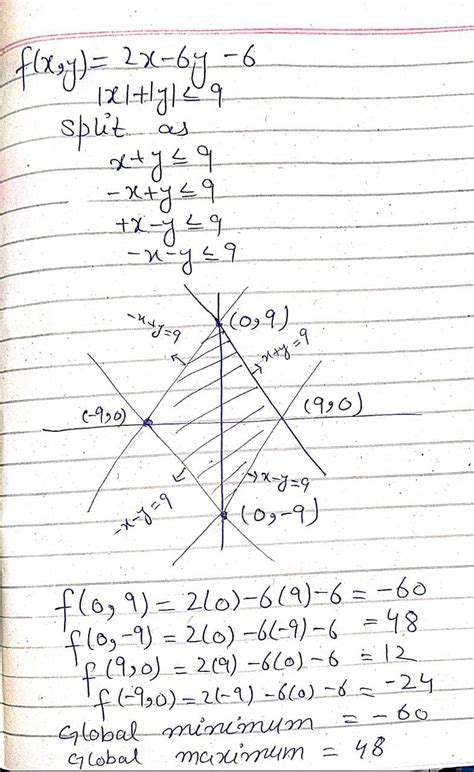 f(x,y) = 2x-6y-6
|x|+|y| ≤ 9
split as
x+y ≤ 9
-x+y ≤ 9
+x-y ≤ 9
-x-y ≤ 9
-x+y=9
(0,9)
x+y=9
(-9,0)
(9,0)
-x-y=9
x-y=9
(0,-9)
f(0,9) = 2(0)-6(9)-6 = -60
f(0,-9) = 2(0)-6(-9)-6 = 48
f(9,0) = 2(9)-6(0)-6 = 12
f(-9,0) = 2(-9)-6(0)-6 = -24
Global minimum = -60
Global maximum = 48